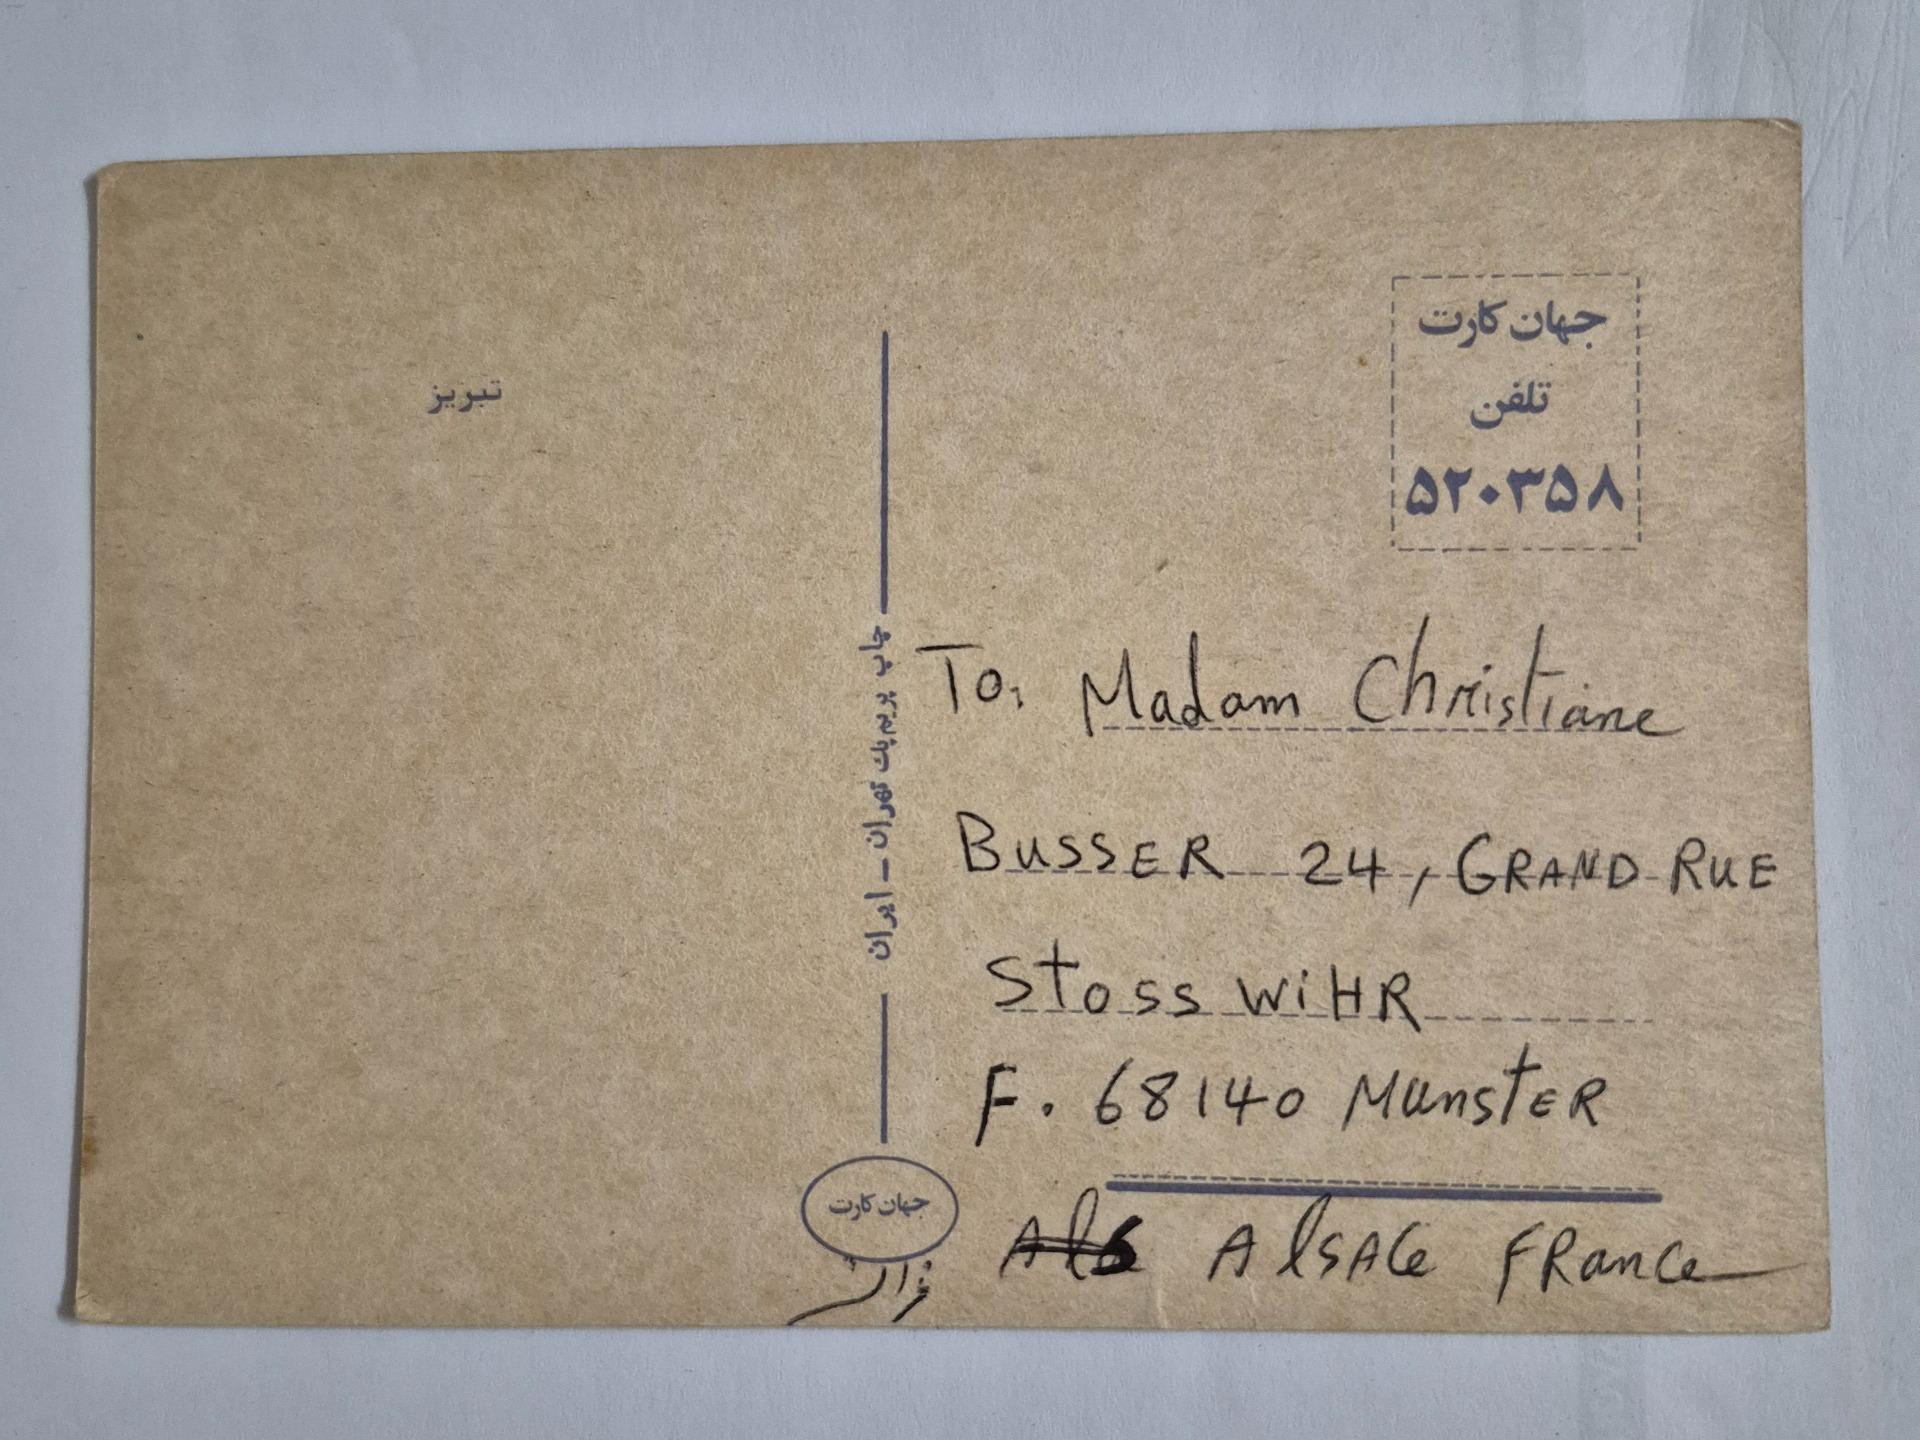 تبریز
جهان کارت
تلفن
۵۲۰۳۵۸
چاپ پریم‌پك تهران – ایران
To: Madam Christiane
BUSSER 24, GRAND RUE
Stoss WiHR
F. 68140 MunstER
AlSACe FRance
جهان کارت
فرانسه